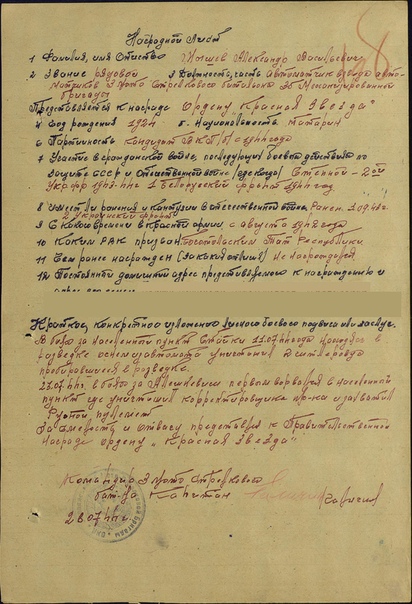 Наградной Лист
1 Фамилия, имя Отчество Мышев Александр Васильевич
2 Звание рядовой 3 Должность, часть Автоматчик взвода авто-
матчиков 3 мото Стрелкового батальона 36 Механизированной
бригады
Представляется к награде Ордену "Красная Звезда"
4 Год рождения 1924 5. Национальность Татарин
6 Партийность кандидат ВКП/б/ с 1944 года
7 Участие в гражданской войне, последующих боевых действиях по
защите СССР и Отечественной войне (где когда) Степной - 2ой
Укр. фр 1943-44г 1 Белорусский фронт 1944 год
8 имеет ли ранения и контузии в отечественной войне Ранен 1.09.43 г
2 Украинский фронт
9 С какого времени в Красной армии с августа 1942 года
10 Каким РВК призван Татар Республики
11 Чем ранее награжден (за какие отличия) Не награждался
12 Постоянный домашний адрес представляемого к награждению и
адрес его семьи
Краткое, конкретное изложение личного боевого подвига или заслуг.
В бою за населенный пункт 11.07.44 года находясь в
разведке огнем из автомата уничтожил 2 гитлеровца
пробиравшиеся в разведке.
27.07.44г. в бою за первым ворвался в населенный
пункт где уничтожил корректировщика пр-ка и захватил
Ручной пулемет
За смелость и отвагу представлен к Правительственной
Награде ордену "Красная Звезда"
Командир 3 мото Стрелкового
бат-на Капитан
28.07.44г.
18